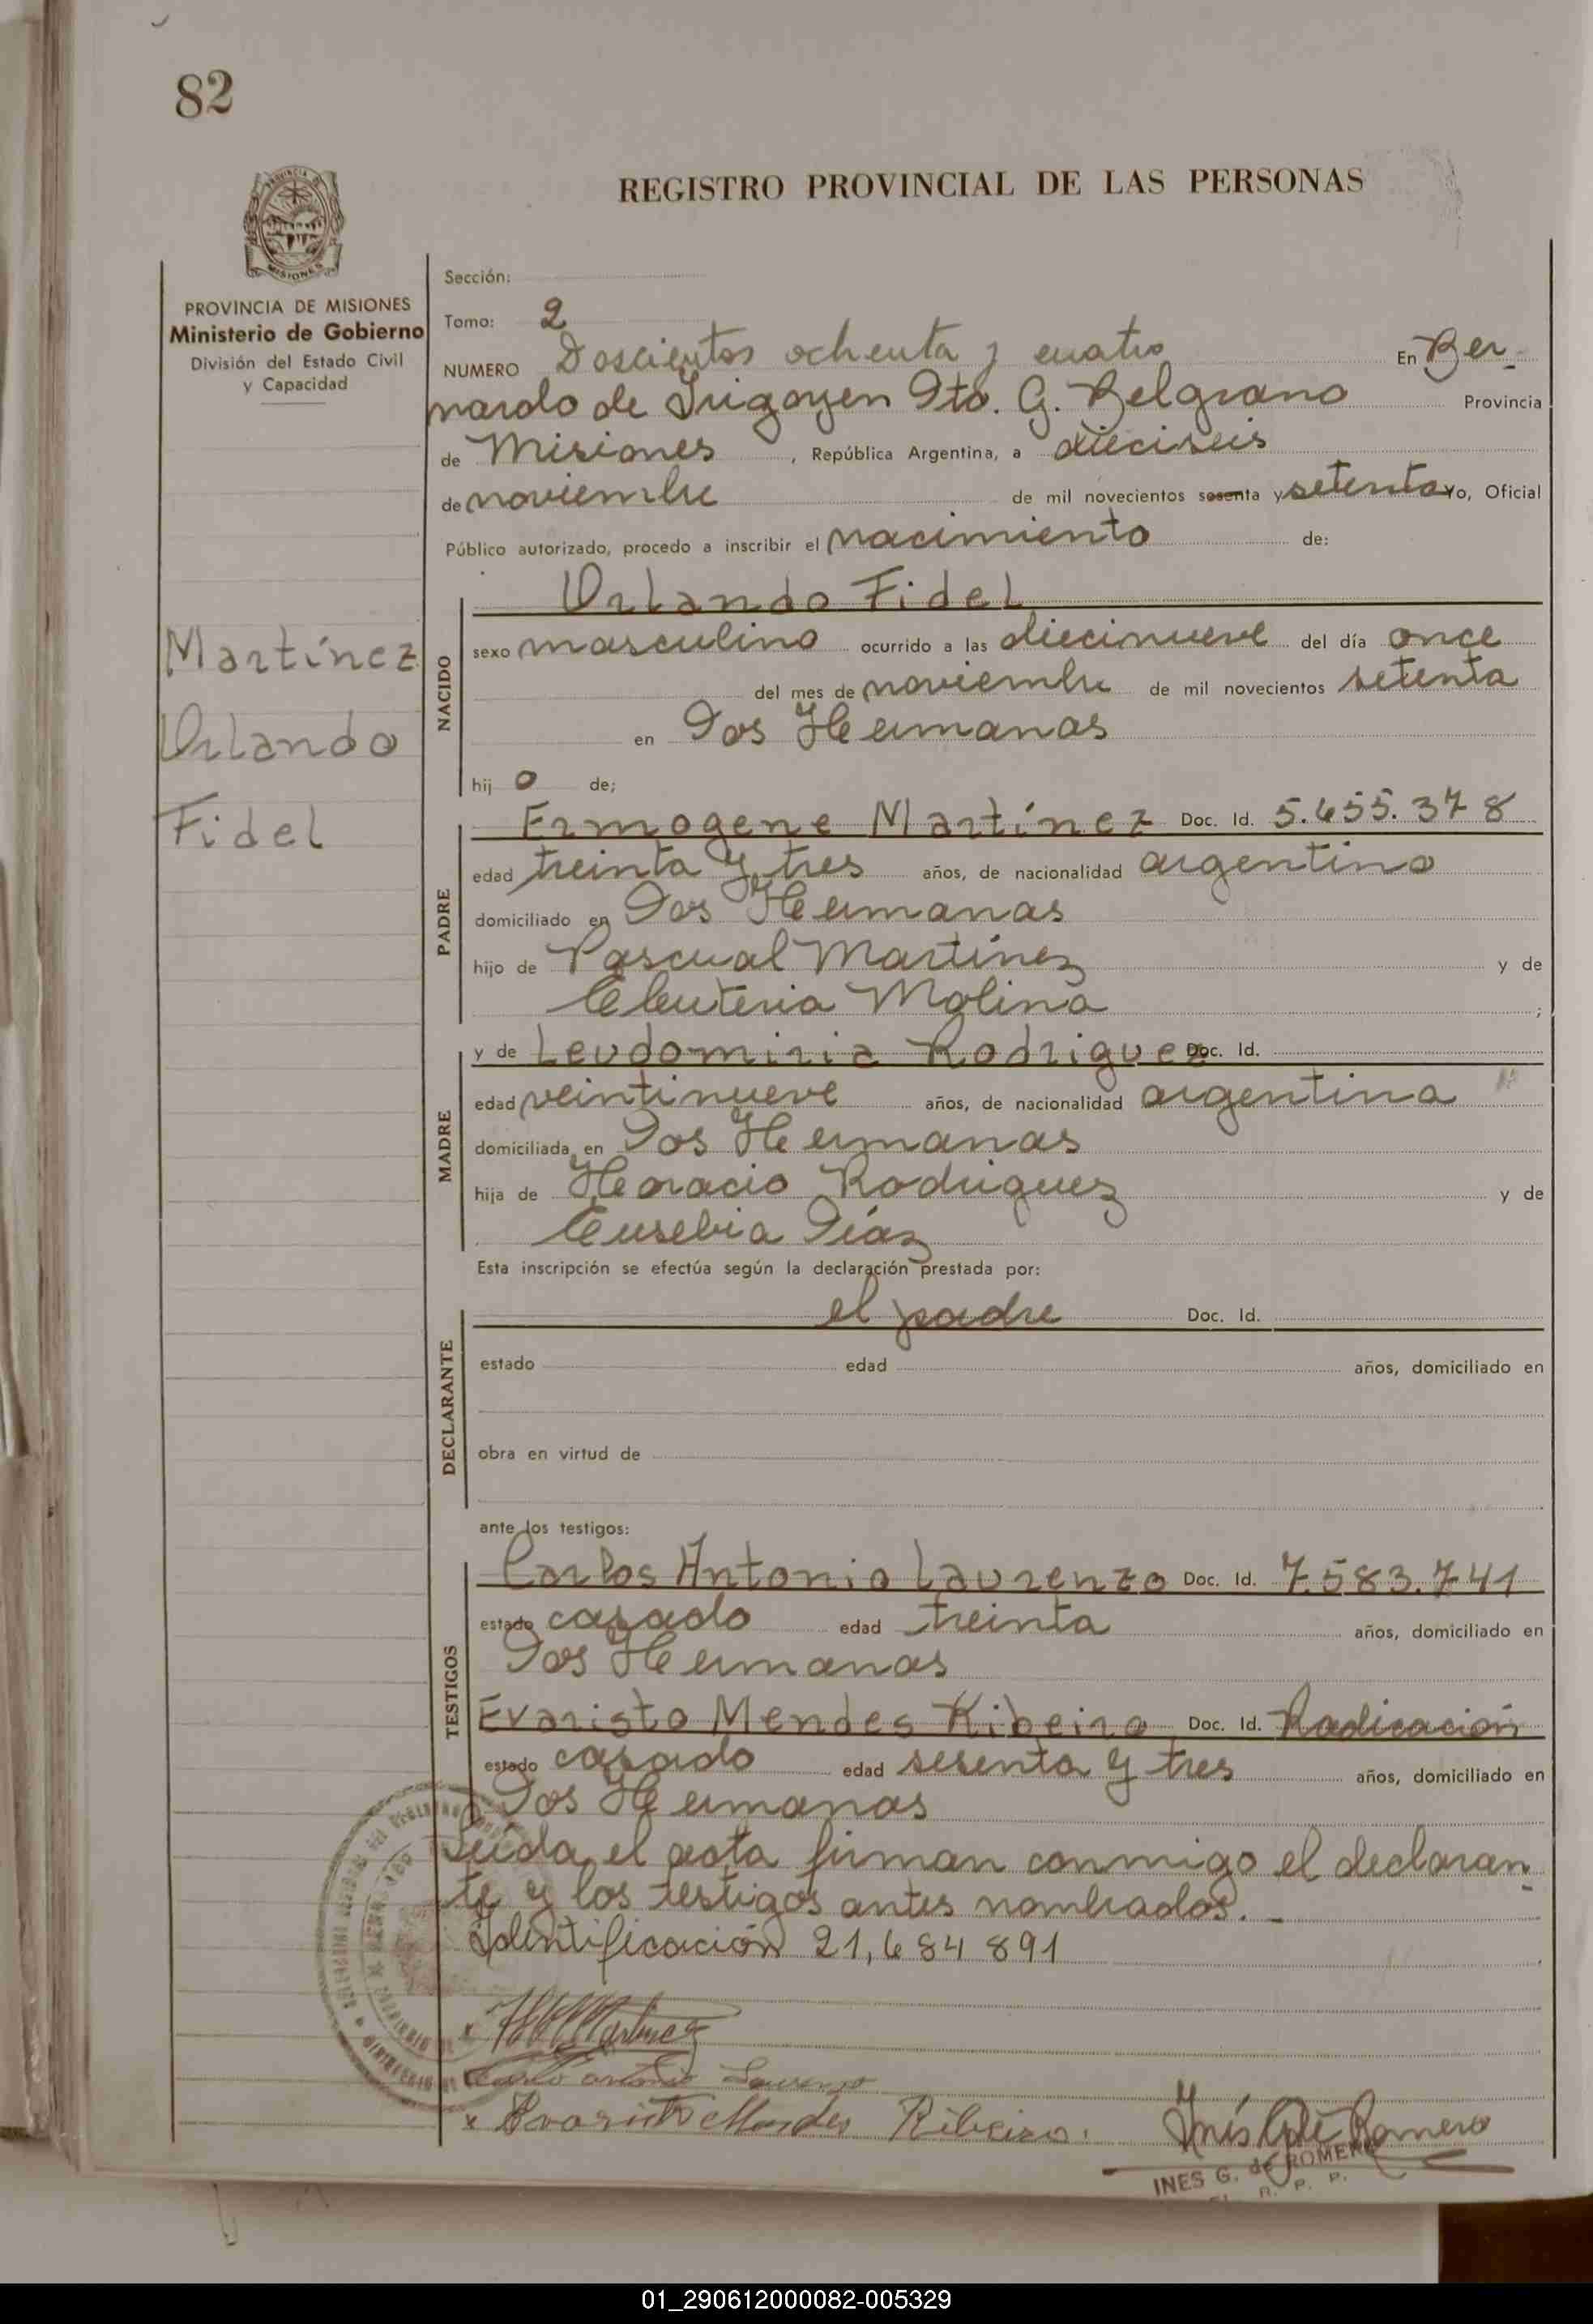 82
REGISTRO PROVINCIAL DE LAS PERSONAS
PROVINCIA DE MISIONES
Ministerio de Gobierno
División del Estado Civil
y Capacidad
Martínez
Orlando
Fidel
Sección:
Tomo: 2
NUMERO Doscientos ochenta y cuatro En Ber-
nardo de Irigoyen Dto. G. Belgrano Provincia
de Misiones, República Argentina, a dieciseis
de noviembre de mil novecientos sesenta y setenta Yo, Oficial
Público autorizado, procedo a inscribir el nacimiento de:
NACIDO
Orlando Fidel
sexo masculino ocurrido a las diecinueve del día once
del mes de noviembre de mil novecientos setenta
en Dos Hermanas
hijo de;
PADRE
Ermogene Martínez Doc. Id. 5.655.378
edad treinta y tres años, de nacionalidad argentino
domiciliado en Dos Hermanas
hijo de Pascual Martínez y de
Eleuteria Molina ;
MADRE
y de Leudomiria Rodriguez Doc. Id.
edad veintinueve años, de nacionalidad argentina
domiciliada en Dos Hermanas
hija de Horacio Rodriguez y de
Eusebia Díaz
Esta inscripción se efectúa según la declaración prestada por:
DECLARANTE
el padre Doc. Id.
estado edad años, domiciliado en
obra en virtud de
ante los testigos:
TESTIGOS
Carlos Antonio Laurenzo Doc. Id. 7.583.741
estado casado edad treinta años, domiciliado en
Dos Hermanas
Evaristo Mendes Ribeiro Doc. Id. Radicación
estado casado edad sesenta y tres años, domiciliado en
Dos Hermanas
Leída el acta firman conmigo el declaran-
te y los testigos antes nombrados.-
Identificación 21,684 891
Martinez
Carlo antonio Laurenzo
x Evaristo Mendes Ribeiro.
Inés G. de Romero
INES G. de ROMERO
R. P. P.
01_290612000082-005329